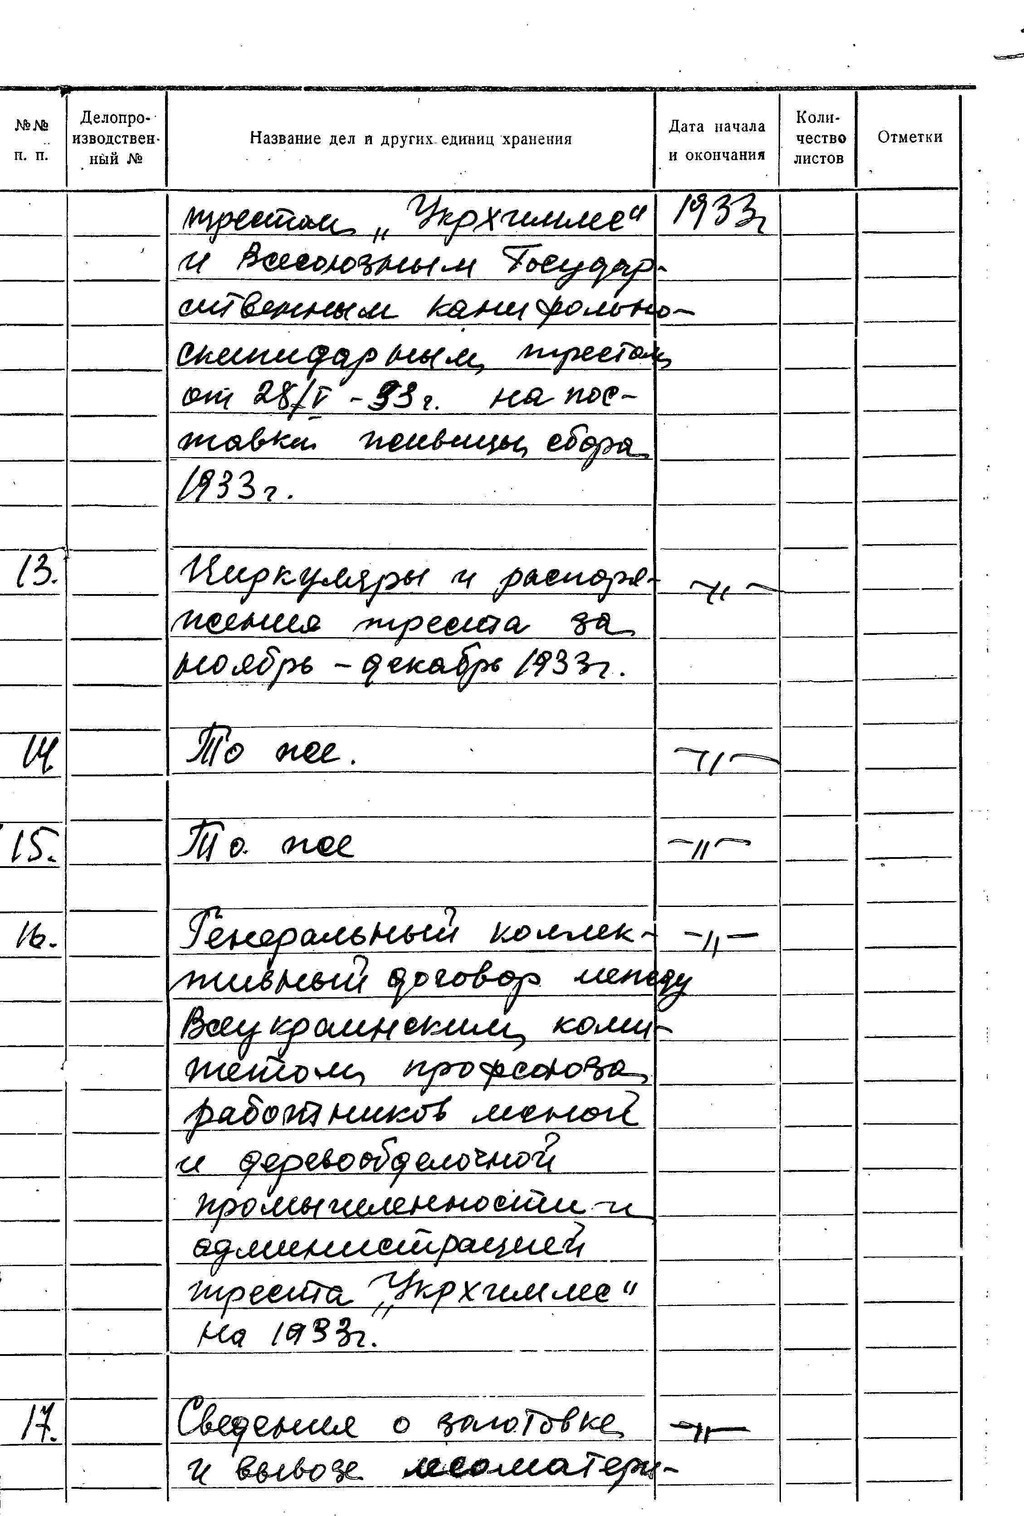 №№ п. п.
Делопро-
изводствен-
ный №
Название дел и других единиц хранения
Дата начала
и окончания
Коли-
чество
листов
Отметки
трестом „Укрхимлес" 1933г
и Всесоюзным Государ-
ственным канифольно-
скипидарным трестом
от 28/V - 33г. на пос-
тавки живицы сбора
1933г.
13. Циркуляры и распоря- -〃-
жения треста за
ноябрь - декабрь 1933г.
14. То же. -〃-
15. То же -〃-
16. Генеральный коллек- -〃-
тивный договор между
Всеукраинским коми-
тетом профсоюза
работников лесной
и деревообделочной
промышленности и
администрацией
треста „Укрхимлес"
на 1933г.
17. Сведения о заготовке -〃-
и вывозе лесоматери-